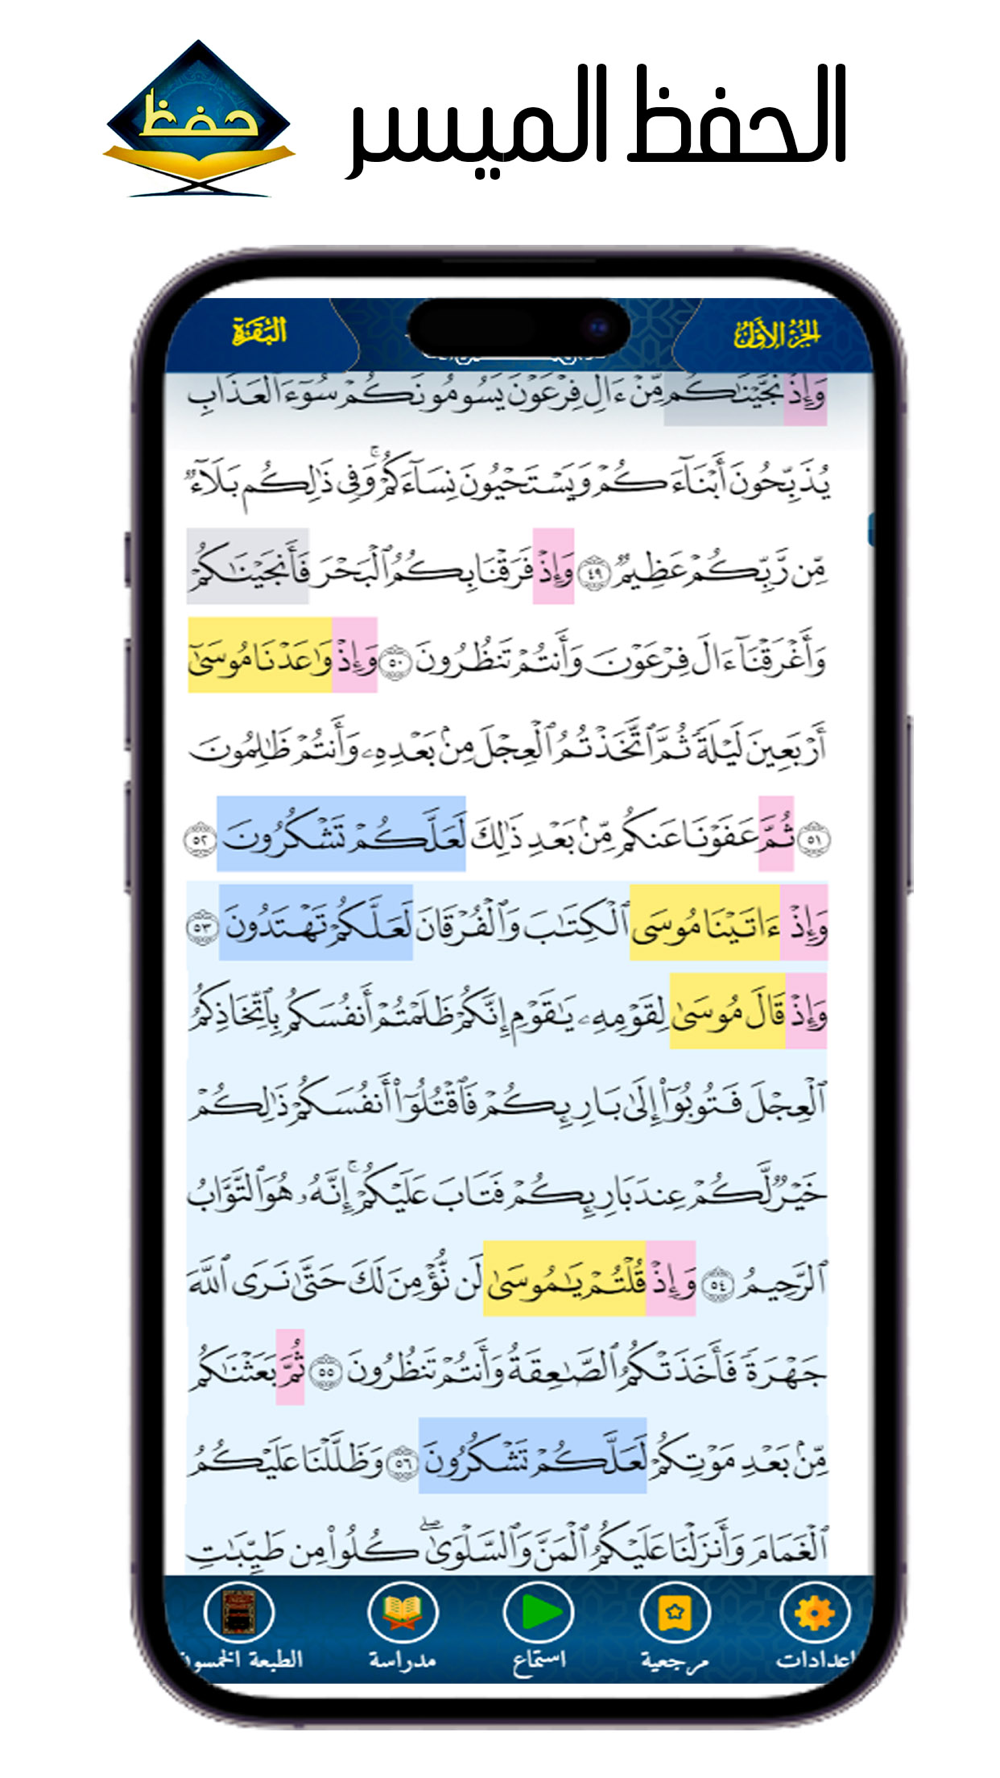 حفظ
الحفظ الميسر
الجزء الأول
البقرة
وَإِذْ نَجَّيْنَٰكُم مِّنْ ءَالِ فِرْعَوْنَ يَسُومُونَكُمْ سُوٓءَ ٱلْعَذَابِ
يُذَبِّحُونَ أَبْنَآءَكُمْ وَيَسْتَحْيُونَ نِسَآءَكُمْ ۚ وَفِى ذَٰلِكُم بَلَآءٌ
مِّن رَّبِّكُمْ عَظِيمٌ ٤٩ وَإِذْ فَرَقْنَا بِكُمُ ٱلْبَحْرَ فَأَنجَيْنَٰكُمْ
وَأَغْرَقْنَآ ءَالَ فِرْعَوْنَ وَأَنتُمْ تَنظُرُونَ ٥٠ وَإِذْ وَٰعَدْنَا مُوسَىٰٓ
أَرْبَعِينَ لَيْلَةً ثُمَّ ٱتَّخَذْتُمُ ٱلْعِجْلَ مِنۢ بَعْدِهِۦ وَأَنتُمْ ظَٰلِمُونَ
٥١ ثُمَّ عَفَوْنَا عَنكُم مِّنۢ بَعْدِ ذَٰلِكَ لَعَلَّكُمْ تَشْكُرُونَ ٥٢
وَإِذْ ءَاتَيْنَا مُوسَى ٱلْكِتَٰبَ وَٱلْفُرْقَانَ لَعَلَّكُمْ تَهْتَدُونَ ٥٣
وَإِذْ قَالَ مُوسَىٰ لِقَوْمِهِۦ يَٰقَوْمِ إِنَّكُمْ ظَلَمْتُمْ أَنفُسَكُم بِٱتِّخَاذِكُمُ
ٱلْعِجْلَ فَتُوبُوٓا۟ إِلَىٰ بَارِئِكُمْ فَٱقْتُلُوٓا۟ أَنفُسَكُمْ ذَٰلِكُمْ
خَيْرٌ لَّكُمْ عِندَ بَارِئِكُمْ فَتَابَ عَلَيْكُمْ ۚ إِنَّهُۥ هُوَ ٱلتَّوَّابُ
ٱلرَّحِيمُ ٥٤ وَإِذْ قُلْتُمْ يَٰمُوسَىٰ لَن نُّؤْمِنَ لَكَ حَتَّىٰ نَرَى ٱللَّهَ
جَهْرَةً فَأَخَذَتْكُمُ ٱلصَّٰعِقَةُ وَأَنتُمْ تَنظُرُونَ ٥٥ ثُمَّ بَعَثْنَٰكُم
مِّنۢ بَعْدِ مَوْتِكُمْ لَعَلَّكُمْ تَشْكُرُونَ ٥٦ وَظَلَّلْنَا عَلَيْكُمُ
ٱلْغَمَامَ وَأَنزَلْنَا عَلَيْكُمُ ٱلْمَنَّ وَٱلسَّلْوَىٰ ۖ كُلُوا۟ مِن طَيِّبَٰتِ
إعدادات
مرجعية
استماع
مدراسة
الطبعة الخمسون